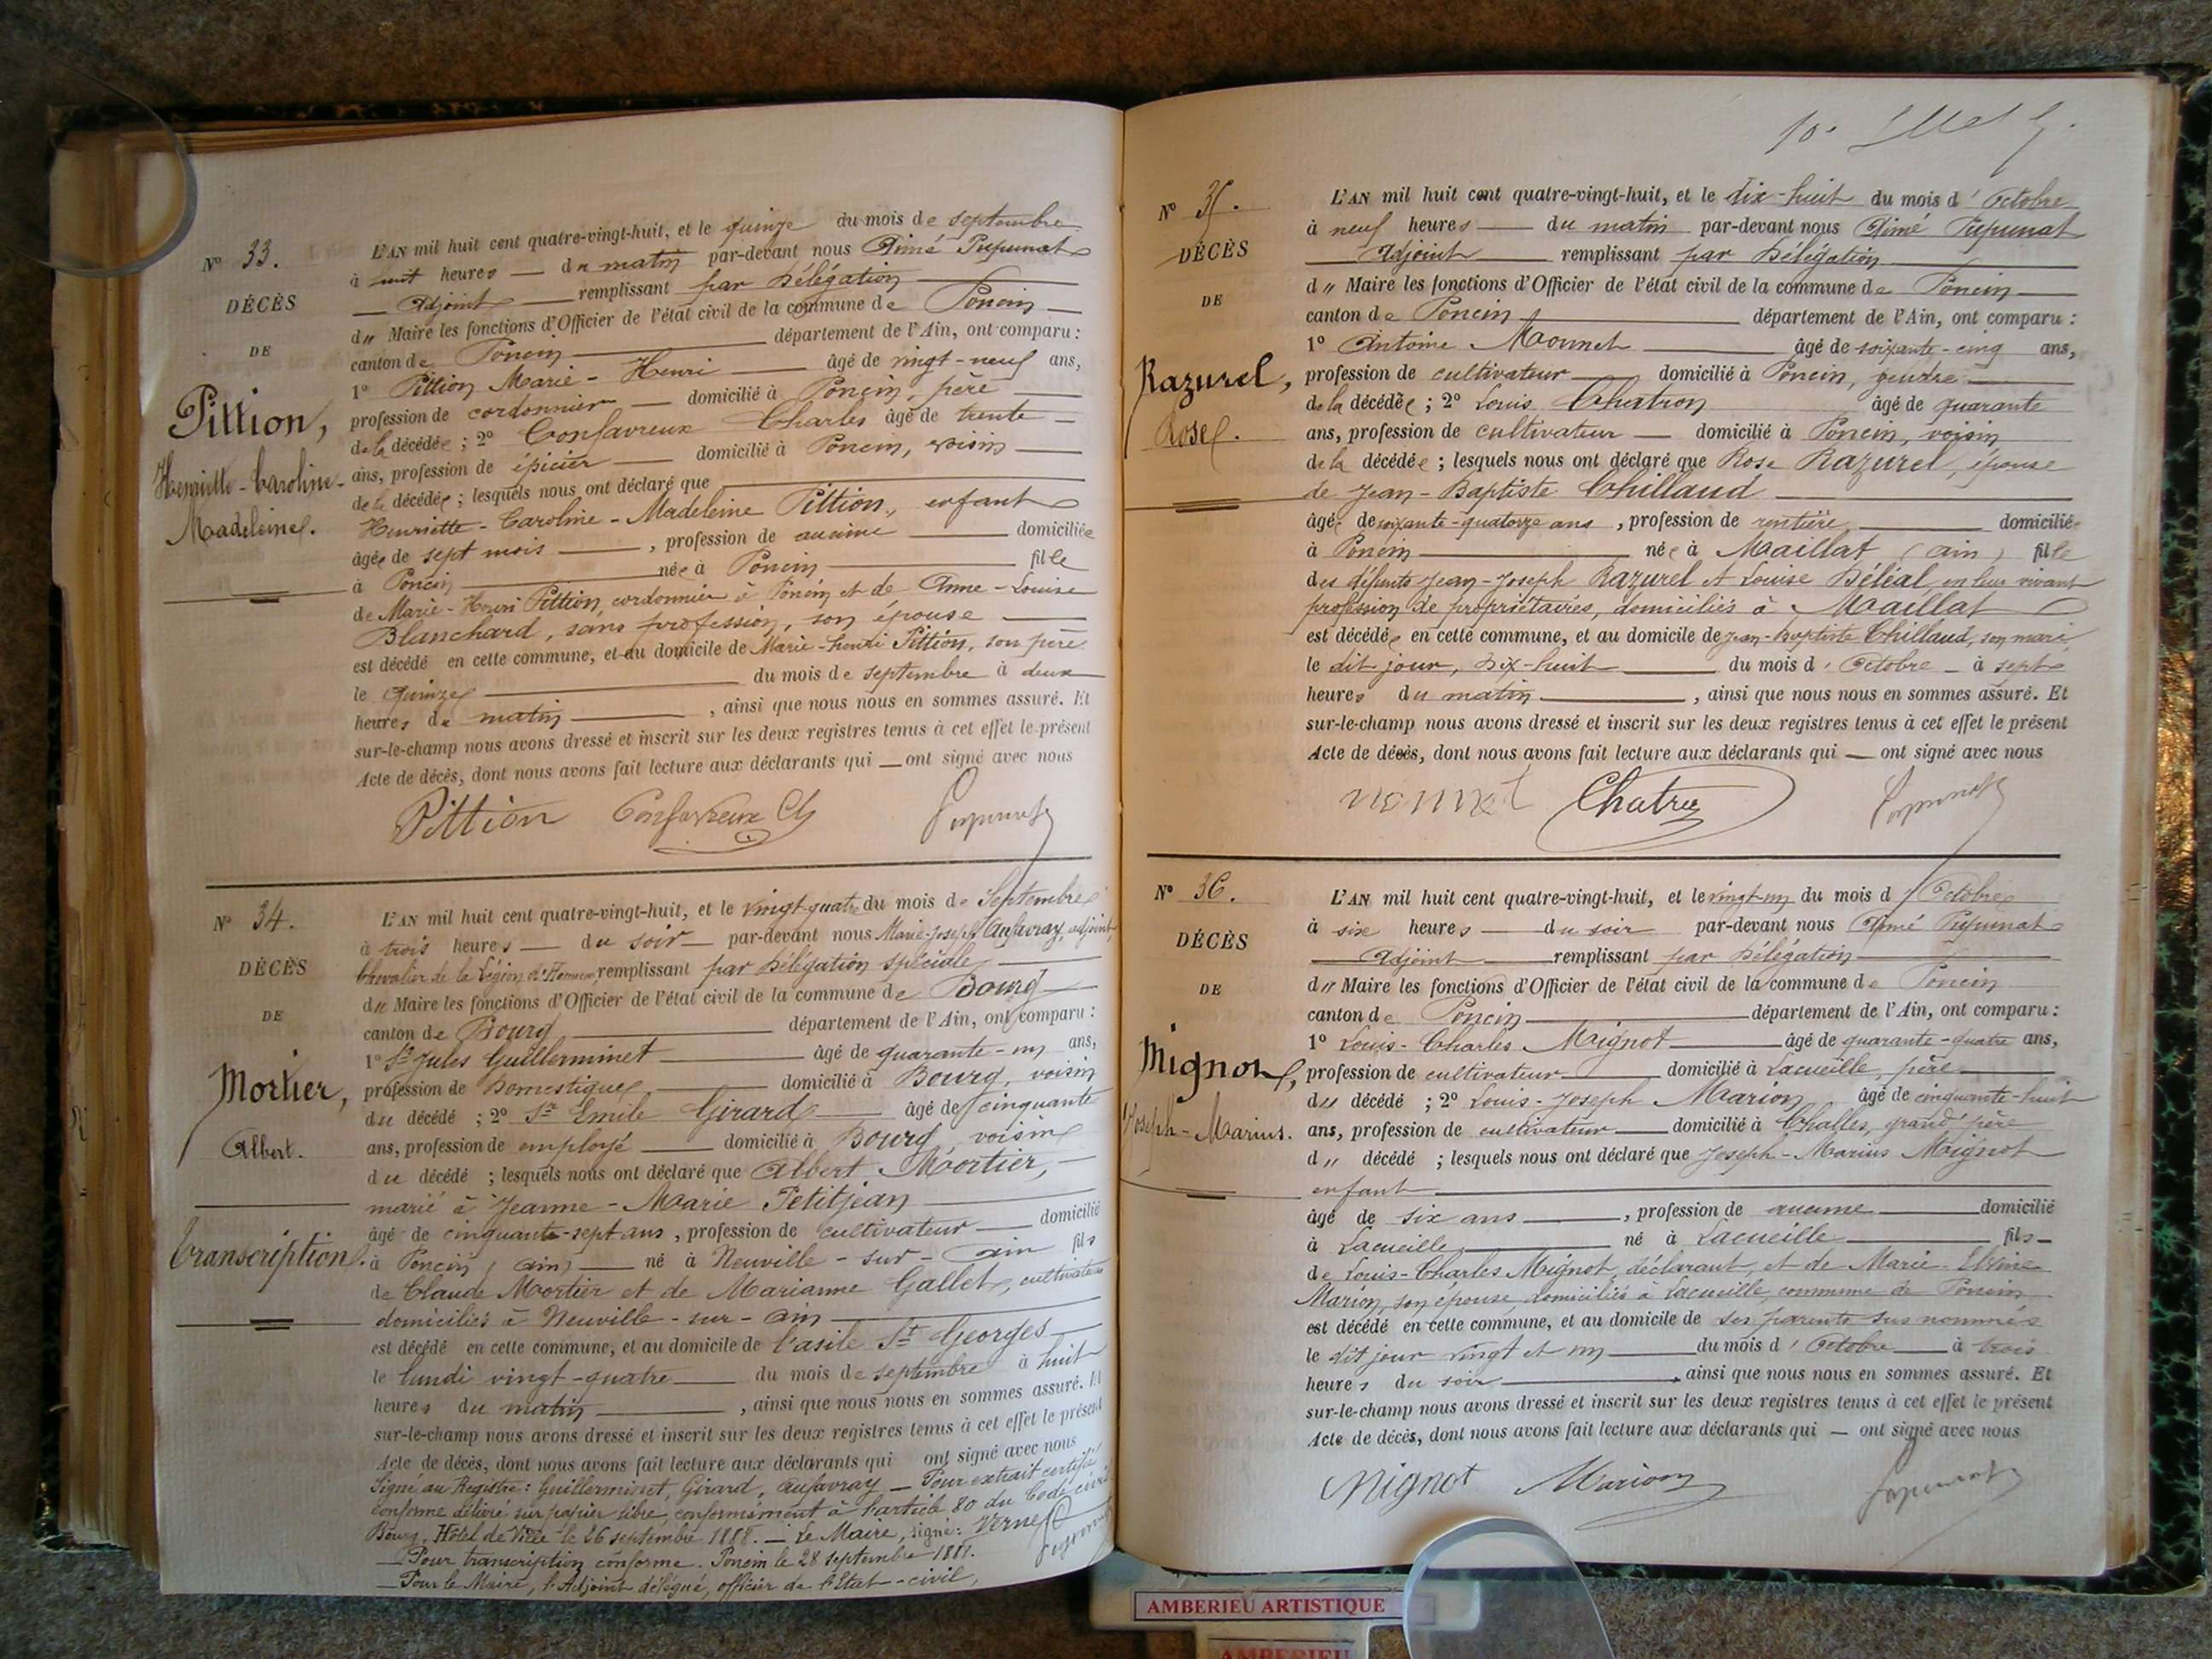 N° 33.
DÉCÈS
DE
Pittion,
Henriette-Caroline-
Madeleine.
L'AN mil huit cent quatre-vingt-huit, et le quinze du mois de septembre
à huit heures — du matin par-devant nous Aimé Pupunat
Adjoint remplissant par Délégation
du Maire les fonctions d'Officier de l'état civil de la commune de Poncin
canton de Poncin département de l'Ain, ont comparu :
1° Pittion Marie-Henri âgé de vingt-neuf ans,
profession de cordonnier — domicilié à Poncin, père
de la décédée ; 2° Confavreux Charles âgé de trente
ans, profession de épicier — domicilié à Poncin, voisin
de la décédée ; lesquels nous ont déclaré que
Henriette-Caroline-Madeleine Pittion, enfant
âgée de sept mois —, profession de aucune domiciliée
à Poncin née à Poncin fille
de Marie-Henri Pittion, cordonnier à Poncin et de Anne-Louise
Blanchard, sans profession, son épouse
est décédé en cette commune, et au domicile de Marie-henri Pittion, son père
le Quinze du mois de septembre à deux
heures du matin —, ainsi que nous nous en sommes assuré. Et
sur-le-champ nous avons dressé et inscrit sur les deux registres tenus à cet effet le présent
Acte de décès, dont nous avons fait lecture aux déclarants qui — ont signé avec nous
Pittion Confavreux Ch Pupunat
N° 34.
DÉCÈS
DE
Mortier,
Albert.
Transcription.
L'AN mil huit cent quatre-vingt-huit, et le vingt-quatre du mois de Septembre
à trois heures — du soir — par-devant nous Marie-Joseph Aufavray, adjoint,
Chevalier de la Légion d'Honneur, remplissant par Délégation spéciale
du Maire les fonctions d'Officier de l'état civil de la commune de Bourg
canton de Bourg département de l'Ain, ont comparu :
1° Sr Jules Guillerminet âgé de quarante-un ans,
profession de Domestique domicilié à Bourg, voisin
du décédé ; 2° Sr Emile Girard âgé de cinquante
ans, profession de employé domicilié à Bourg, voisin
du décédé ; lesquels nous ont déclaré que Albert Mortier,
marié à Jeanne-Marie Petitjean
âgé de cinquante-sept ans, profession de cultivateur domicilié
à Poncin (Ain) né à Neuville-sur-Ain fils
de Claude Mortier et de Marianne Gallet, cultivateurs
domiciliés à Neuville-sur-Ain
est décédé en cette commune, et au domicile de l'asile St Georges
le lundi vingt-quatre du mois de septembre à huit
heures du matin —, ainsi que nous nous en sommes assuré. Et
sur-le-champ nous avons dressé et inscrit sur les deux registres tenus à cet effet le présent
Acte de décès, dont nous avons fait lecture aux déclarants qui ont signé avec nous
Signé au Registre : Guillerminet, Girard, Aufavray — Pour extrait certifié
conforme délivré sur papier libre, conformément à l'article 80 du Code civil
Bourg, Hôtel de Ville le 26 septembre 1888. — Le Maire, signé : Verne
— Pour transcription conforme. Poncin le 28 septembre 1888.
— Pour le Maire, l'Adjoint délégué, officier de l'Etat-civil,
Pupunat
N° 35.
DÉCÈS
DE
Razurel,
Rose.
L'AN mil huit cent quatre-vingt-huit, et le dix-huit du mois d'Octobre
à neuf heures — du matin par-devant nous Aimé Pupunat
Adjoint remplissant par Délégation
du Maire les fonctions d'Officier de l'état civil de la commune de Poncin
canton de Poncin département de l'Ain, ont comparu :
1° Antoine Monnet âgé de soixante-cinq ans,
profession de cultivateur domicilié à Poncin, gendre
de la décédée ; 2° Louis Chatron âgé de quarante
ans, profession de cultivateur — domicilié à Poncin, voisin
de la décédée ; lesquels nous ont déclaré que Rose Razurel, épouse
de Jean-Baptiste Chillaud
âgée de soixante-quatorze ans, profession de rentière domiciliée
à Poncin née à Maillat (Ain) fille
des défunts Jean-Joseph Razurel et Louise Béléal, en leur vivant
profession de propriétaires, domiciliés à Maillat
est décédée en cette commune, et au domicile de Jean-Baptiste Chillaud, son mari
le dit jour, dix-huit du mois d'Octobre — à sept
heures du matin —, ainsi que nous nous en sommes assuré. Et
sur-le-champ nous avons dressé et inscrit sur les deux registres tenus à cet effet le présent
Acte de décès, dont nous avons fait lecture aux déclarants qui — ont signé avec nous
monnet Chatron Pupunat
N° 36.
DÉCÈS
DE
Mignot,
Joseph-Marius.
L'AN mil huit cent quatre-vingt-huit, et le vingt-un du mois d'Octobre
à six heures — du soir par-devant nous Aimé Pupunat
Adjoint remplissant par Délégation
du Maire les fonctions d'Officier de l'état civil de la commune de Poncin
canton de Poncin département de l'Ain, ont comparu :
1° Louis-Charles Mignot âgé de quarante-quatre ans,
profession de cultivateur domicilié à Lacueille, père
du décédé ; 2° Louis-Joseph Marion âgé de cinquante-huit
ans, profession de cultivateur domicilié à Challes, grand'père
du décédé ; lesquels nous ont déclaré que Joseph-Marius Mignot
enfant
âgé de six ans —, profession de aucune domicilié
à Lacueille né à Lacueille fils
de Louis-Charles Mignot, déclarant, et de Marie-
Marion, son épouse, domiciliés à Lacueille, commune de Poncin
est décédé en cette commune, et au domicile de ses parents sus nommés
le dit jour vingt et un du mois d'Octobre à trois
heures du soir —, ainsi que nous nous en sommes assuré. Et
sur-le-champ nous avons dressé et inscrit sur les deux registres tenus à cet effet le présent
Acte de décès, dont nous avons fait lecture aux déclarants qui — ont signé avec nous
Mignot Marion Pupunat
AMBERIEU ARTISTIQUE
AMBERIEU